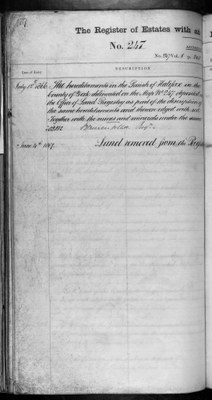 The Register of Estates with an
No. 247.
Date of Entry.
DESCRIPTION
July 1866. The hereditaments in the Parish of Halifax in the
County of York delineated on the Map No. 247 deposited in
the Office of Land Registry as part of the description of
the same hereditaments and thereon edged with red
Together with the mines and minerals under the same
June 4th 1867. Land removed from the Register